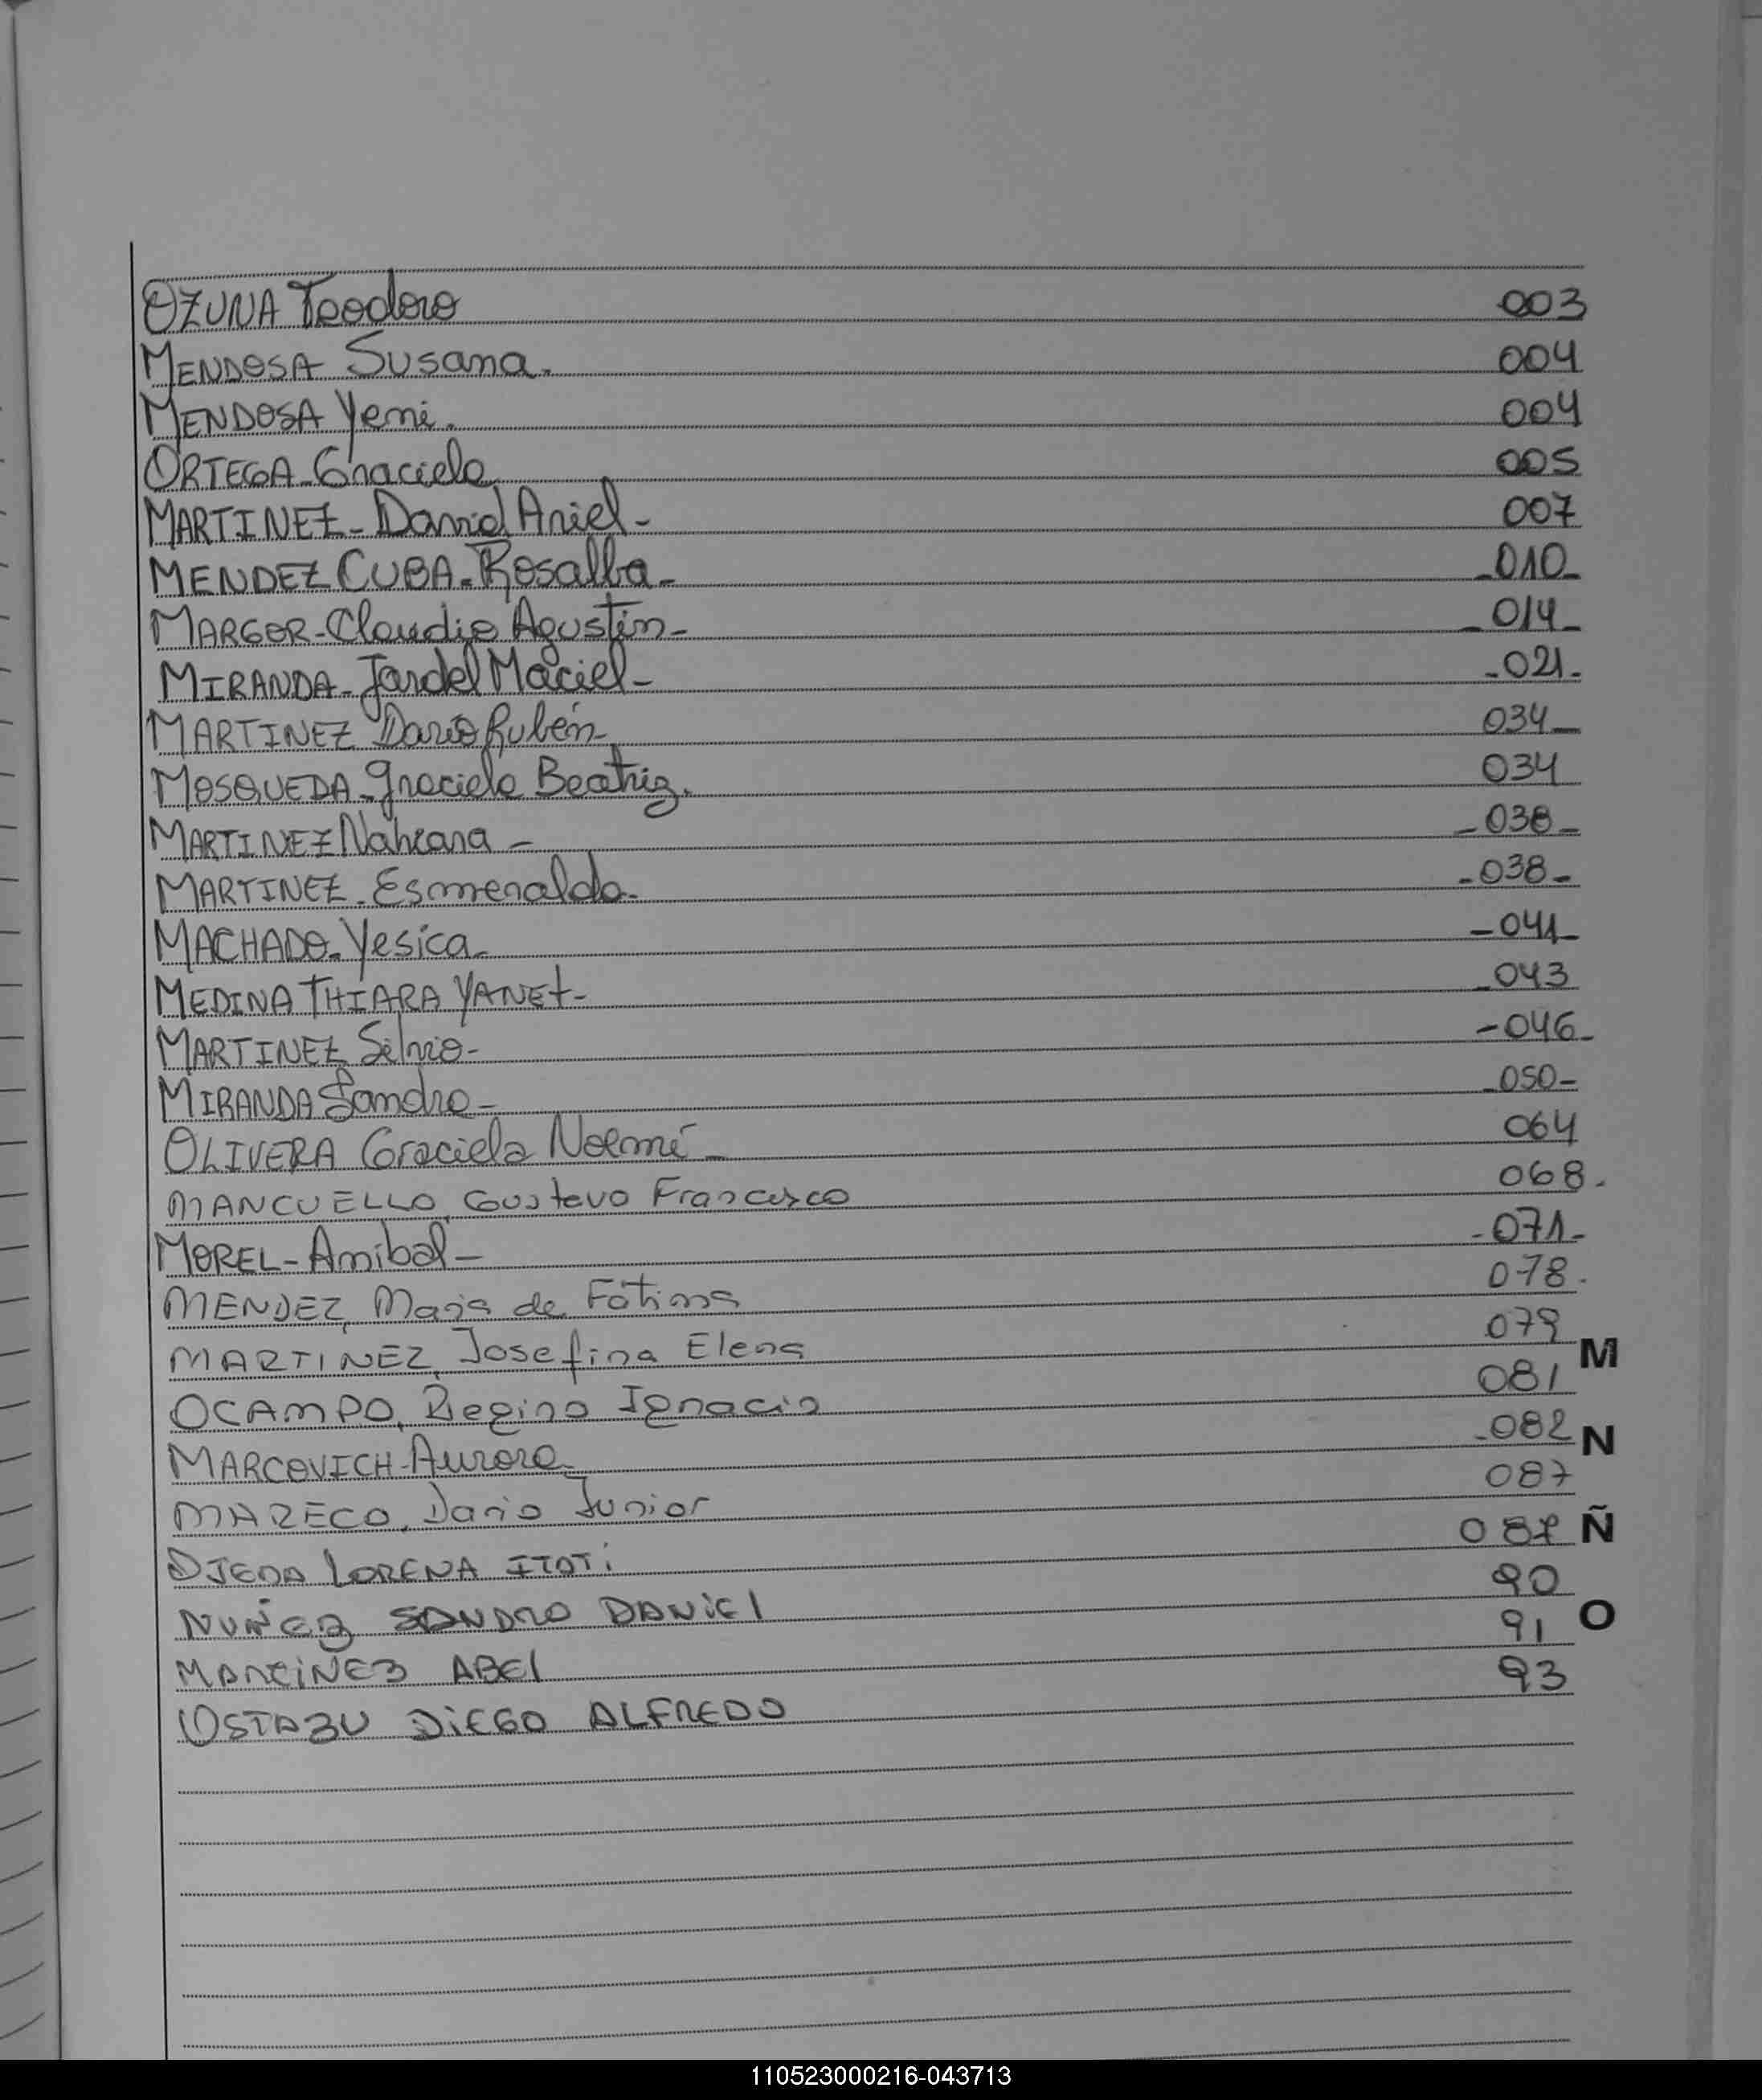 OZUNA Teodoro 003
MENDOSA Susana. 004
MENDOSA Yemi. 004
ORTEGA-Graciela 005
MARTINEZ-David Ariel- 007
MENDEZ CUBA-Rosalba- -010-
MARGOR-Claudio Agustín- -014-
MIRANDA-Jardel Maciel- -021-
MARTINEZ Darío Rubén- 034-
MOSQUEDA-Graciela Beatriz. 034
MARTINEZ Nahiara - -038-
MARTINEZ-Esmeralda- -038-
MACHADO-Yesica- -041-
MEDINA THIARA YANEt- -043
MARTINEZ Silvio- -046-
MIRANDA Sandro- -050-
OLIVERA Graciela Noemí- 064
MANCUELLO, Gustavo Francisco 068.
MOREL-Anibal- -071-
MENDEZ, María de Fátima 078.
MARTINEZ, Josefina Elena 079
M
OCAMPO, Regino Ignacio 081
MARCOVICH-Aurora- -082
N
MARECO, Dario Junior 087
OJEDA LORENA ITATÍ 087
Ñ
NUÑEZ SANDRO DANIEL 90
MARTINEZ ABEL 91
O
OSTAZU DIEGO ALFREDO 93
110523000216-043713